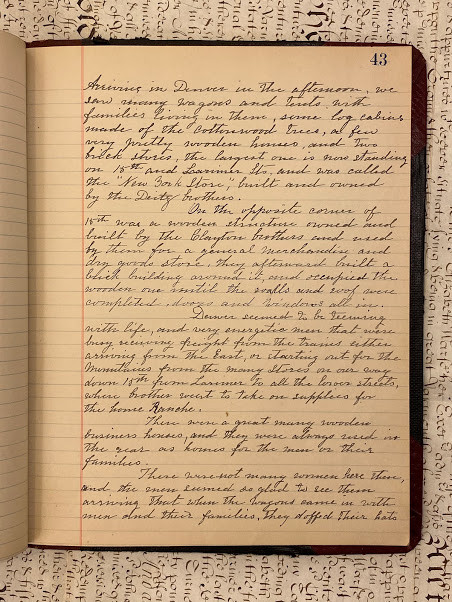 43
Arriving in Denver in the afternoon, we
saw many wagons and tents with
families living in them, some log cabins
made of the cottonwood trees, a few
very pretty wooden houses, and two
brick stores, the largest one is now standing
on 15th and Larimer Sts. and was called
the "New York Store", built and owned
by the Deitz brothers.
On the opposite corner of
15th was a wooden structure owned and
built by the Clayton brothers and used
by them for a general merchandise and
dry goods store. They afterward built a
brick building around it, and occupied the
wooden one until the walls and roof were
completed, doors and windows all in.
Denver seemed to be teeming
with life, and very energetic men that were
busy receiving freight from the trains either
arriving from the East, or starting out for the
Mountains from the many stores on our way
down 15th from Larimer to all the lower streets,
where brother went to take on supplies for
the home Ranche.
There were a great many wooden
business houses, and they were always used in
the rear as homes for the men or their
families.
There were not many women here then,
and the men seemed so glad to see them
arriving that when the wagons came in with
men and their families, they doffed their hats